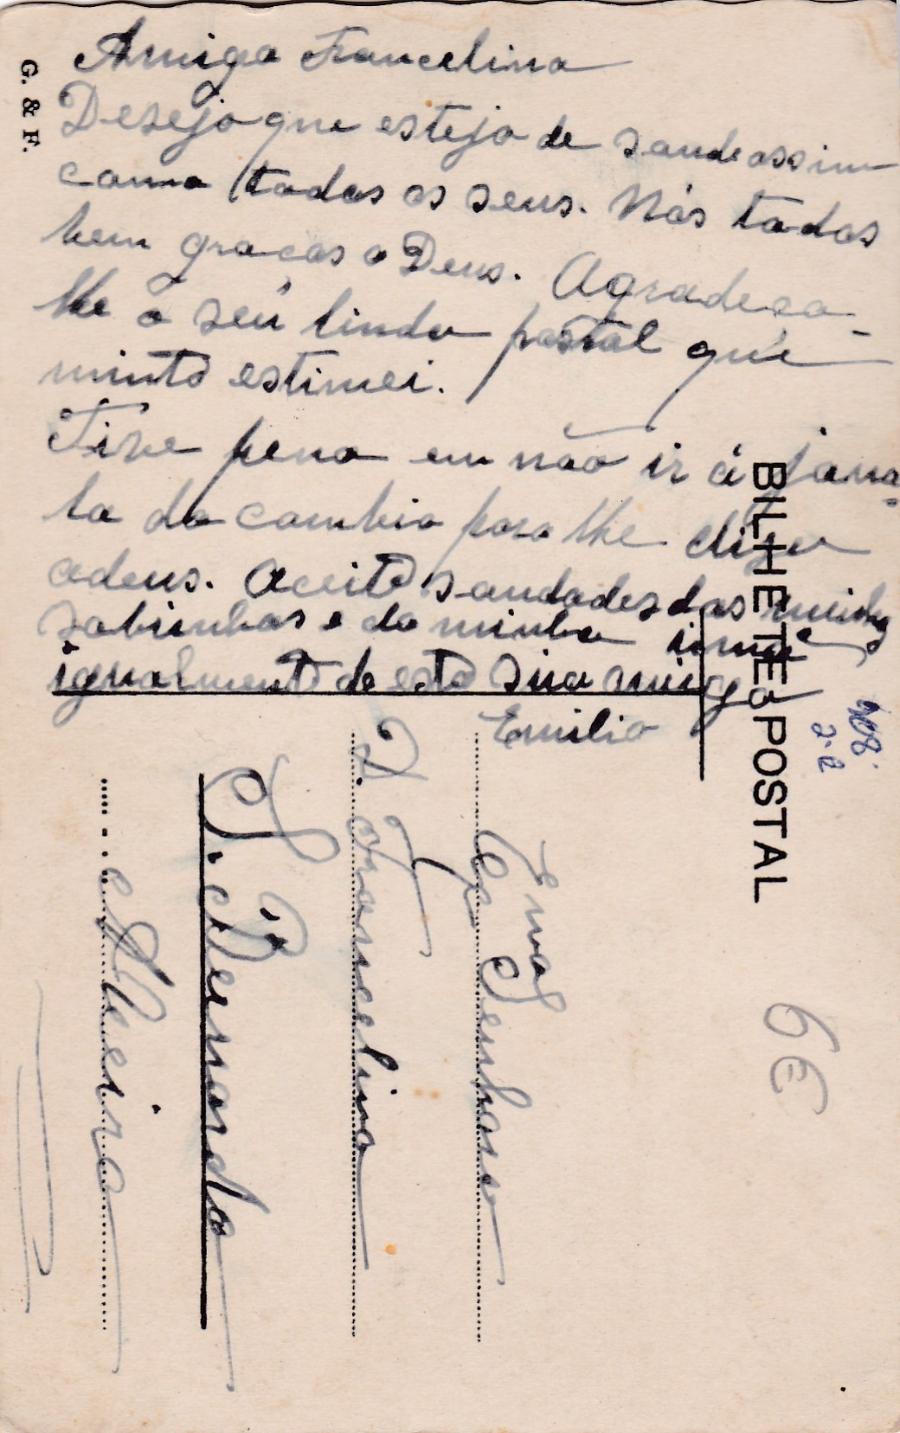 G. & F.
Amiga Francelina
Desejo que esteja de saude assim
como todos os seus. Nós todos
bem graças a Deus. Agradeço-
lhe o seu lindo postal que
muito estimei.
Tive pena em não ir á jane-
la do comboio para lhe dizer
adeus. Aceite saudades das minhas
sobinhas e da minha irmã
igualmente de esta sua amiga
Emilia
BILHETE POSTAL
2.2
6€
Exma
Senhora
D. Francelina
S. Bernardo
Aveiro